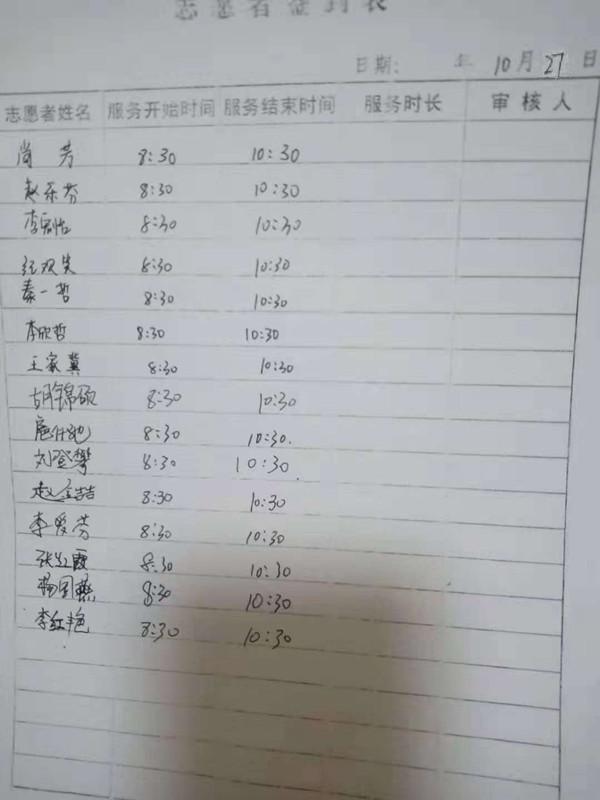 志愿者签到表
日期: 年 10月27日
志愿者姓名 服务开始时间 服务结束时间 服务时长 审核人
尚芳 8:30 10:30
赵乐芬 8:30 10:30
8:30 10:30
8:30 10:30
秦一哲 8:30 10:30
李欣哲 8:30 10:30
王家冀 8:30 10:30
胡锦硕 8:30 10:30
8:30 10:30.
刘登攀 8:30 10:30
8:30 10:30
李爱芬 8:30 10:30
张红霞 8:30 10:30
杨国燕 8:30 10:30
李红艳 8:30 10:30